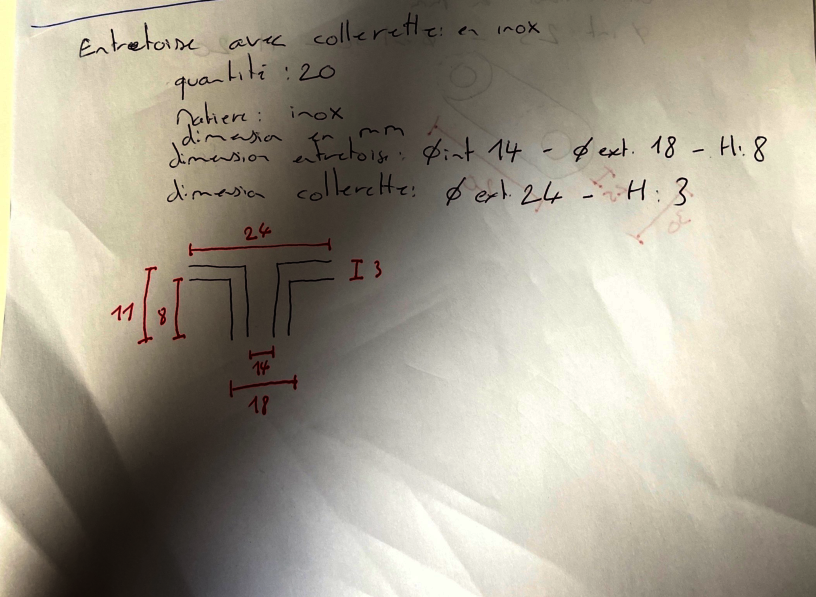 Entretoise avec collerette: en inox
quantité : 20
Matiere : inox
dimension en mm
dimension entretoise: Øint 14 - Øext. 18 - H: 8
dimension collerette: Ø ext. 24 - H: 3
24
3
11
8
14
18